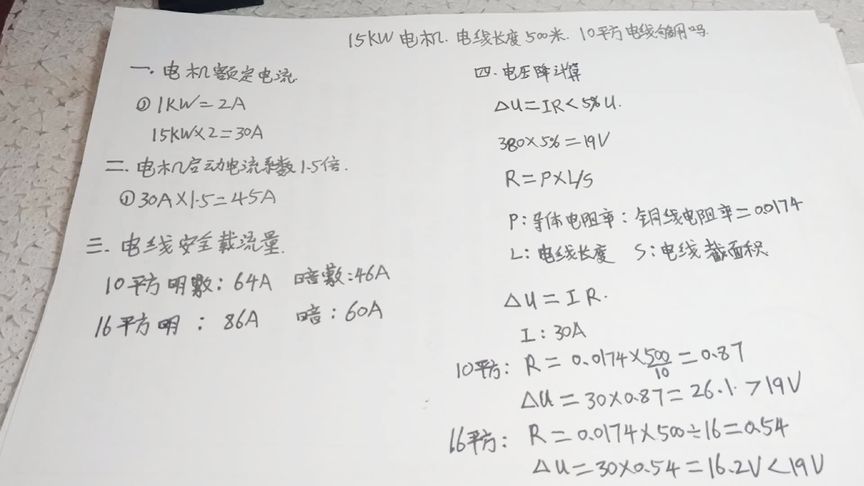 15KW电机.电线长度500米.10平方电线够用吗
一.电机额定电流
① 1KW=2A
15KW×2=30A
二.电机启动电流系数1.5倍.
① 30A×1.5=45A
三.电线安全载流量.
10平方明敷:64A 暗敷:46A
16平方明:86A 暗:60A
四.电压降计算
△U=IR<5%U.
380×5%=19V
R=P×L/S
P:导体电阻率:铜线电阻率=0.0174
L:电线长度 S:电线截面积
△U=IR.
I:30A
10平方:R=0.0174×500/10=0.87
△U=30×0.87=26.1>19V
16平方:R=0.0174×500÷16=0.54
△U=30×0.54=16.2V<19V